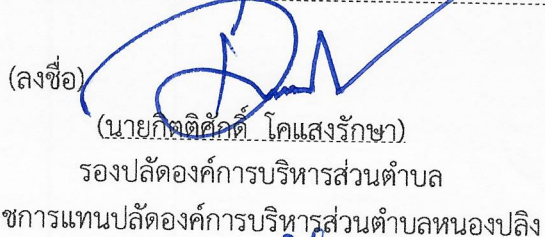 (ลงชื่อ)
(นายกิตติศักดิ์ โคแสงรักษา)
รองปลัดองค์การบริหารส่วนตำบล
ชการแทนปลัดองค์การบริหารส่วนตำบลหนองปลิง